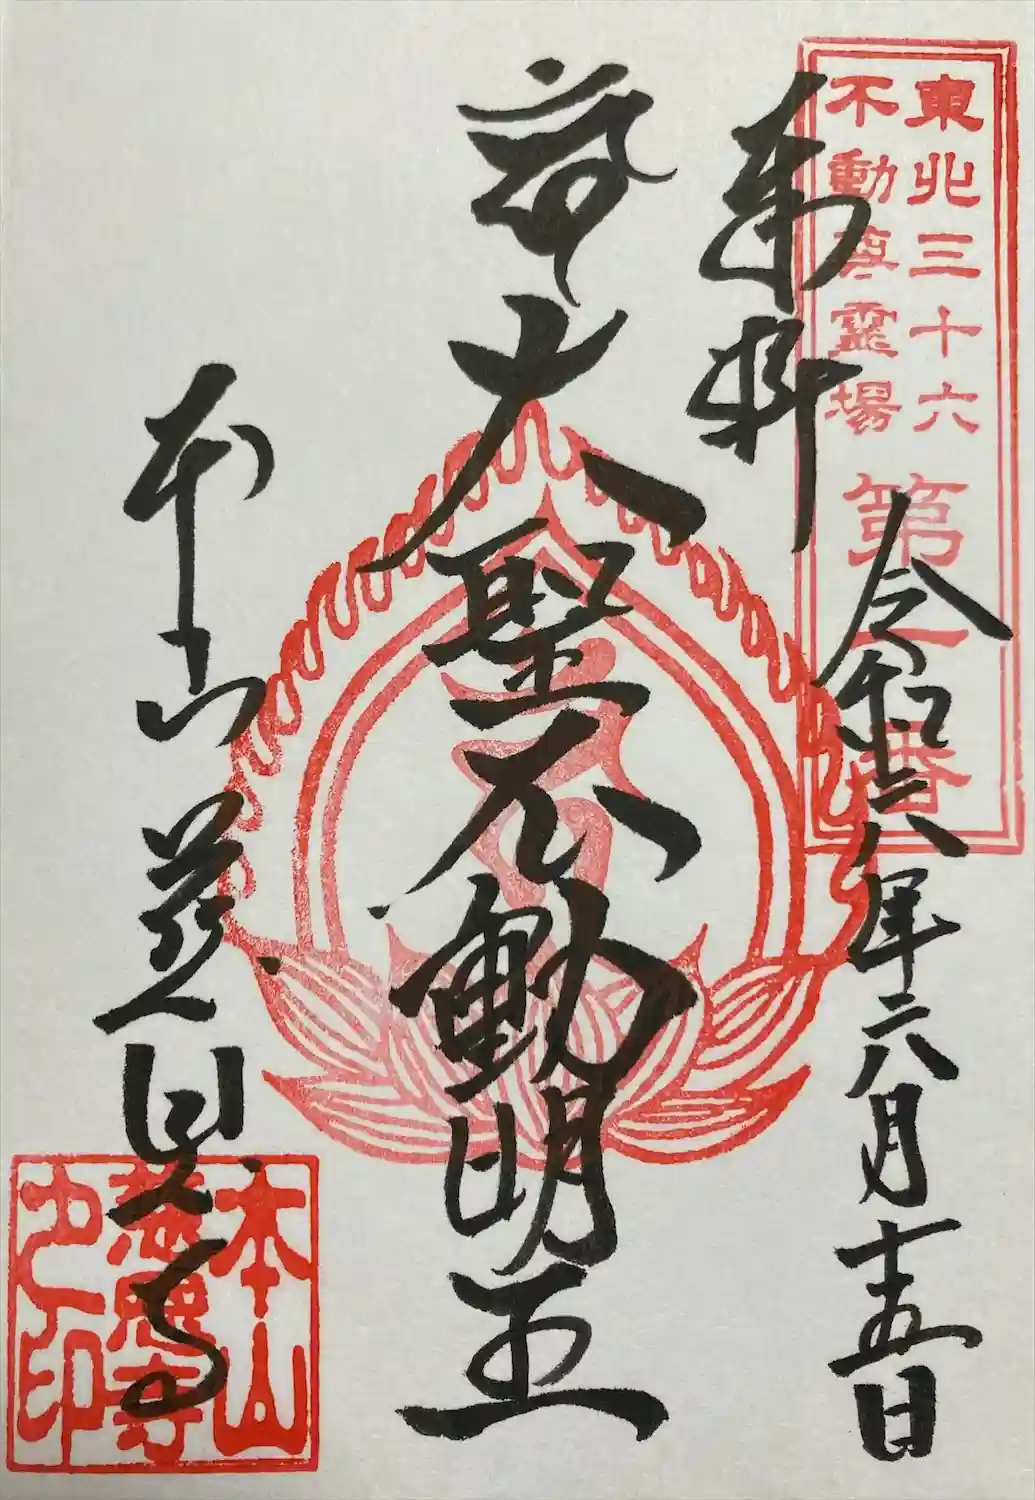 東北三十六
不動尊靈場
第一番
奉拝
令和六年六月十五日
大聖不動明王
本山慈恩寺
本山
慈恩寺
之印